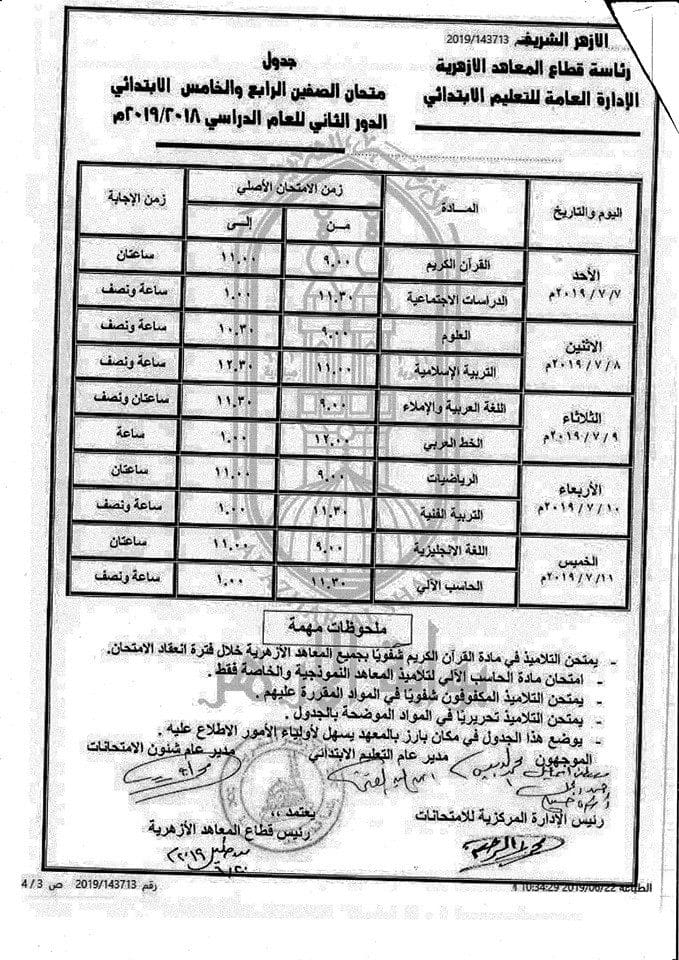 الازهر الشريف 2019/143713
رئاسة قطاع المعاهد الازهرية
الإدارة العامة للتعليم الابتدائي
جدول
متحان الصفين الرابع والخامس الابتدائي
الدور الثاني للعام الدراسي ٢٠١٩/٢٠١٨م
اليوم والتاريخ المـادة زمن الامتحان الأصلي زمن الإجابة
مـن إلـى
الأحد ٢٠١٩/٧/٧م القرآن الكريم ٩.٠٠ ١١.٠٠ ساعتان
الدراسات الاجتماعية ١١.٣٠ ١.٠٠ ساعة ونصف
الاثنين ٢٠١٩/٧/٨م العلوم ٩.٠٠ ١٠.٣٠ ساعة ونصف
التربية الإسلامية ١١.٠٠ ١٢.٣٠ ساعة ونصف
الثلاثاء ٢٠١٩/٧/٩م اللغة العربية والإملاء ٩.٠٠ ١١.٣٠ ساعتان ونصف
الخط العربي ١٢.٠٠ ١.٠٠ ساعة
الأربعاء ٢٠١٩/٧/١٠م الرياضيات ٩.٠٠ ١١.٠٠ ساعتان
التربية الفنية ١١.٣٠ ١.٠٠ ساعة ونصف
الخميس ٢٠١٩/٧/١١م اللغة الانجليزية ٩.٠٠ ١١.٠٠ ساعتان
الحاسب الآلي ١١.٣٠ ١.٠٠ ساعة ونصف
ملحوظات مهمة
- يمتحن التلاميذ في مادة القرآن الكريم شفويًا بجميع المعاهد الأزهرية خلال فترة انعقاد الامتحان.
- امتحان مادة الحاسب الآلي لتلاميذ المعاهد النموذجية والخاصة فقط .
- يمتحن التلاميذ المكفوفون شفويًا في المواد المقررة عليهم .
- يمتحن التلاميذ تحريريًا في المواد الموضحة بالجدول .
- يوضع هذا الجدول في مكان بارز بالمعهد يسهل لأولياء الأمور الاطلاع عليه .
الموجهون مدير عام التعليم الابتدائي مدير عام شئون الامتحانات
رئيس الإدارة المركزية للامتحانات
يعتمد ،،
رئيس قطاع المعاهد الأزهرية
الطباعة 2019/06/22 10:34:29
رقم 2019/143713 ص 3 / 4